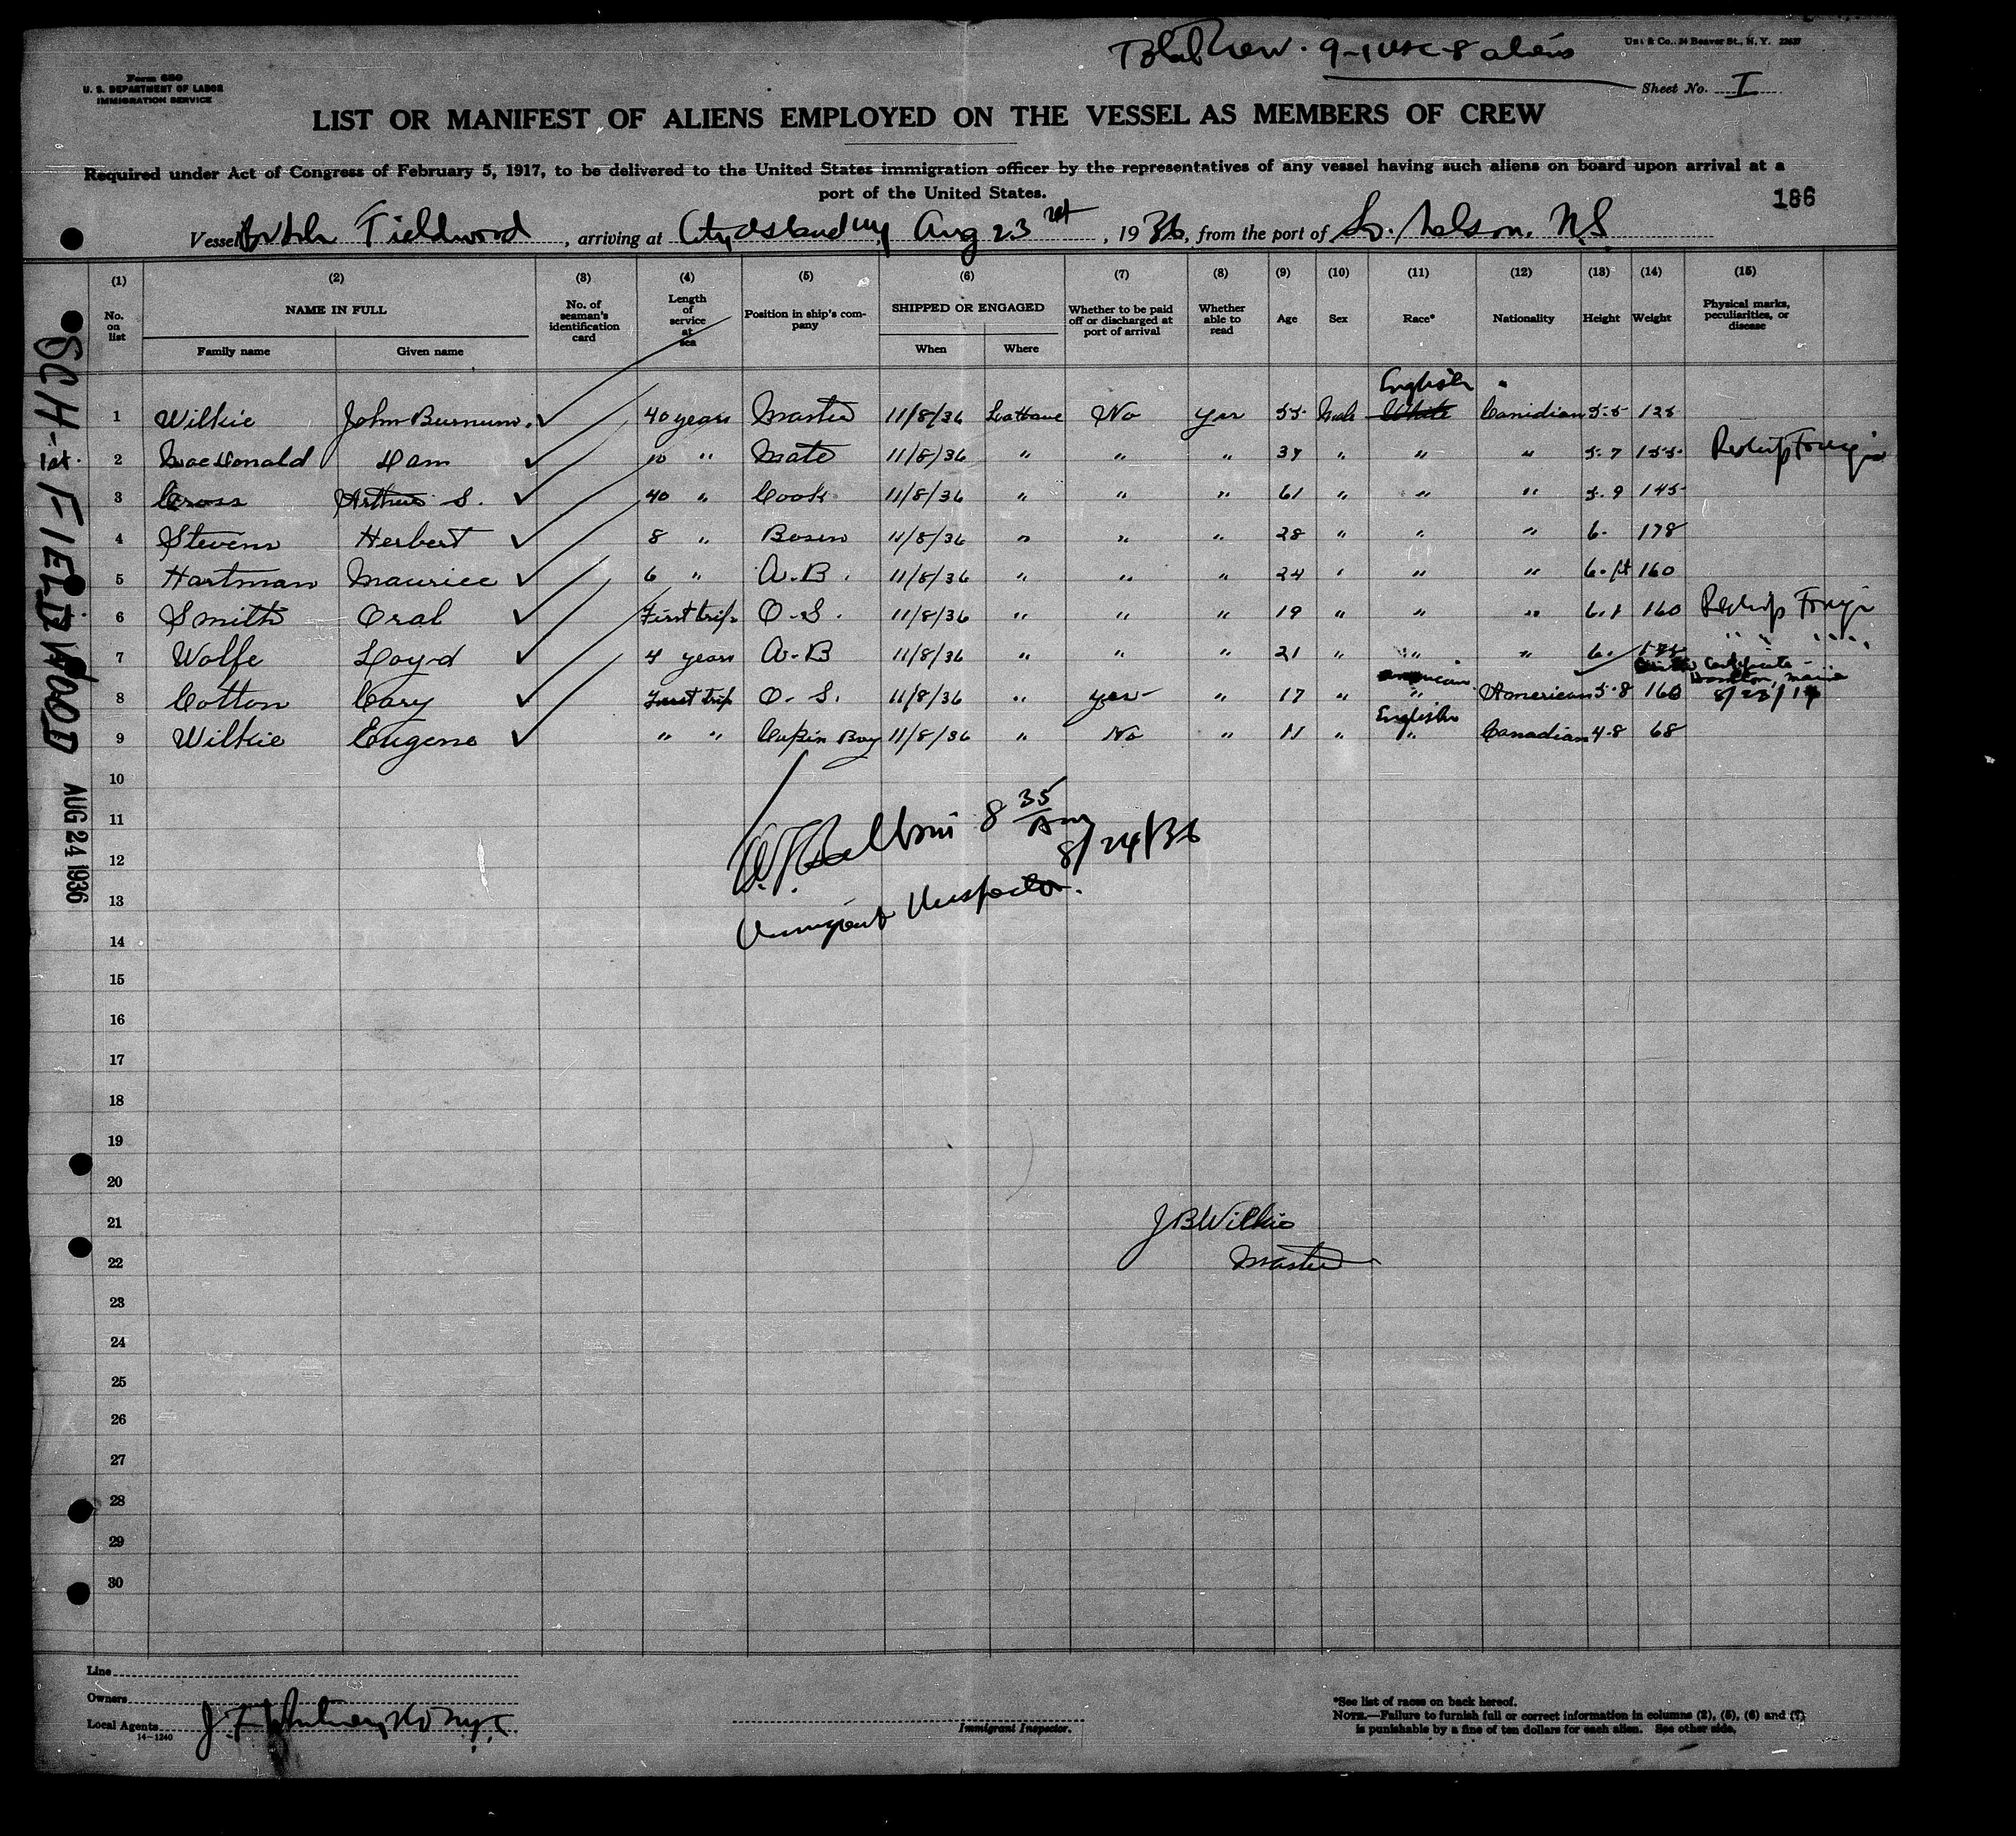 Total Crew. 9 - 1 USC - 8 aliens
Form 680
U. S. DEPARTMENT OF LABOR
IMMIGRATION SERVICE
Sheet No. I
LIST OR MANIFEST OF ALIENS EMPLOYED ON THE VESSEL AS MEMBERS OF CREW
Required under Act of Congress of February 5, 1917, to be delivered to the United States immigration officer by the representatives of any vessel having such aliens on board upon arrival at a
port of the United States.
186
Vessel Fieldwood, arriving at City Island NY, Aug 23, 1936, from the port of Nelson, N.S.
(1) (2) (3) (4) (5) (6) (7) (8) (9) (10) (11) (12) (13) (14) (15)
No. on list NAME IN FULL Family name Given name No. of seaman's identification card Length of service at sea Position in ship's company SHIPPED OR ENGAGED When Where Whether to be paid off or discharged at port of arrival Whether able to read Age Sex Race* Nationality Height Weight Physical marks, peculiarities, or disease
English
1 Wilkie John Burnum. 40 years Master 11/8/36 LaHave No Yes 55 Male White Canidian 5-5 125
2 MacDonald 10 " Mate 11/8/36 " " " 37 " " " 5-7 155
3 Cross Arthur S. 40 " Cook 11/8/36 " " " 61 " " " 5-9 145
4 Stevens Herbert 8 " Bosen 11/8/36 " " " 28 " " " 6- 178
5 Hartman Maurice 6 " A.B. 11/8/36 " " " 24 " " " 6- 160
6 Smith Oral First trip O.S. 11/8/36 " " " 19 " " " 6.1 160
7 Wolfe Loyd 4 years A.B 11/8/36 " " " 21 " " " 6.
American Certificate - Houlton, Maine
8 Cotton Cary First trip O.S. 11/8/36 " yes " 17 " " American 5-8 160 8/23/19
English
9 Wilkie Eugene " " Cabin Boy 11/8/36 " No " 11 " " Canadian 4-8 68
10
11
8 35 Am
12
8/24/36
13
Immigrant Inspector.
14
15
16
17
18
19
20
21
J B Wilkie
22
Master
23
24
25
26
27
28
29
30
SCH- FIELDWOOD AUG 24 1936
1st.
Line
Owners
Local Agents J F Whitney Co N.Y.C
14-1240
Immigrant Inspector.
*See list of races on back hereof.
NOTE.—Failure to furnish full or correct information in columns (2), (5), (6) and (7)
is punishable by a fine of ten dollars for each alien. See other side.